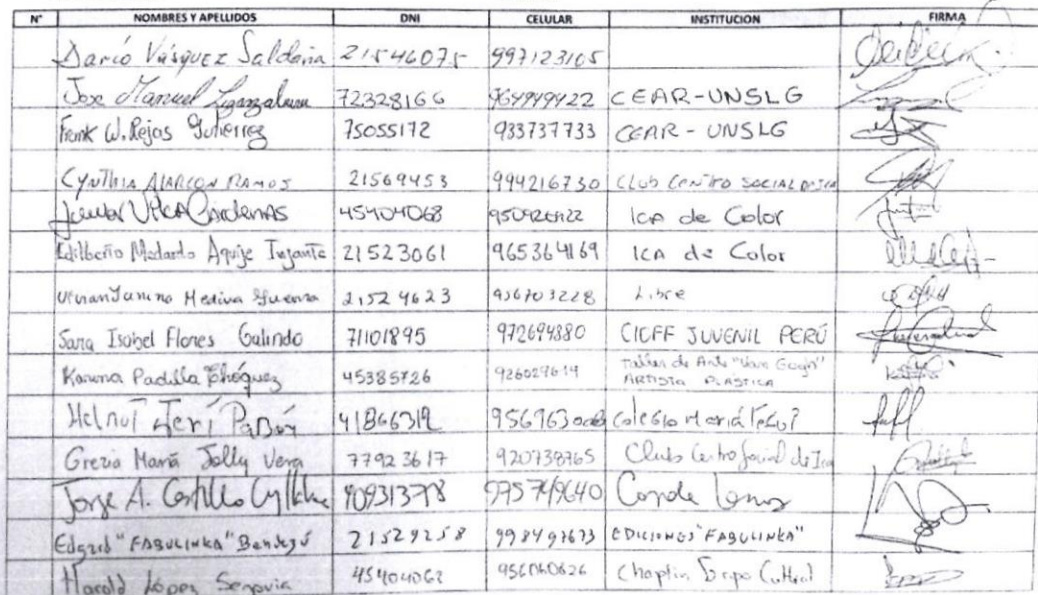 N° NOMBRES Y APELLIDOS DNI CELULAR INSTITUCION FIRMA
Darío Vásquez Saldaña 21546075 997123105
Jose Manuel 72328166 964949422 CEAR-UNSLG
Frank W. Rejas Gutierrez 75055172 933737733 CEAR - UNSLG
CYNTHIA ALARCON RAMOS 21569453 994216730 CLUB CENTRO SOCIAL DE ICA
Junior Vilca Cárdenas 45404068 ICA de Color
Edilberto Medardo Aquije Injante 21523061 965364169 ICA de Color
Medina Guerra 21524623 956703228 Libre
Sara Isabel Flores Galindo 71101895 972694880 CIOFF JUVENIL PERÚ
Karina Padilla 45385726 926029614 Taller de Arte "Van Gogh"
ARTISTA PLÁSTICA
Helmut Jerí Pabón 41866312 Colegio María
Grezia María Jolly Vera 77923617 920738765 Club Centro Social de Ica
Jorge A. Castillo 975749640
Edgard "FABULINKA" Bendezú 21529258 998497673 EDICIONES "FABULINKA"
Harold López Segovia 45404062 956060626 Chaplin Grupo Cultural